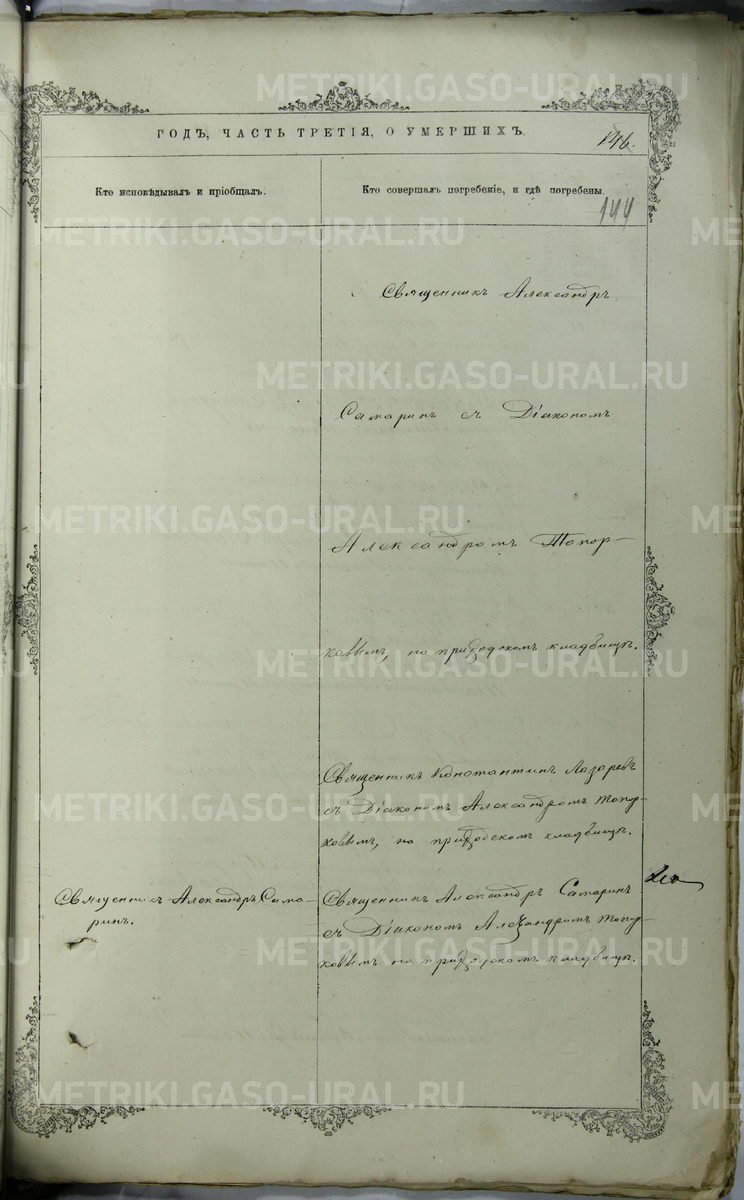 ГОДЪ, ЧАСТЬ ТРЕТІЯ, О УМЕРШИХЪ.
146.
Кто исповѣдывалъ и пріобщалъ.
Кто совершалъ погребеніе, и гдѣ погребены.
144
Священникъ Александръ
Самаринъ съ Діакономъ
Александромъ Топор-
ковымъ, на приходскомъ кладбищѣ.
Священникъ Константинъ Лазаревъ
съ Діакономъ Александромъ Топор-
ковымъ, на приходскомъ кладбищѣ.
Священникъ Александръ Сама-
ринъ.
Священникъ Александръ Самаринъ
съ Діакономъ Александромъ Топор-
ковымъ на приходскомъ кладбищѣ.
METRIKI.GASO-URAL.RU